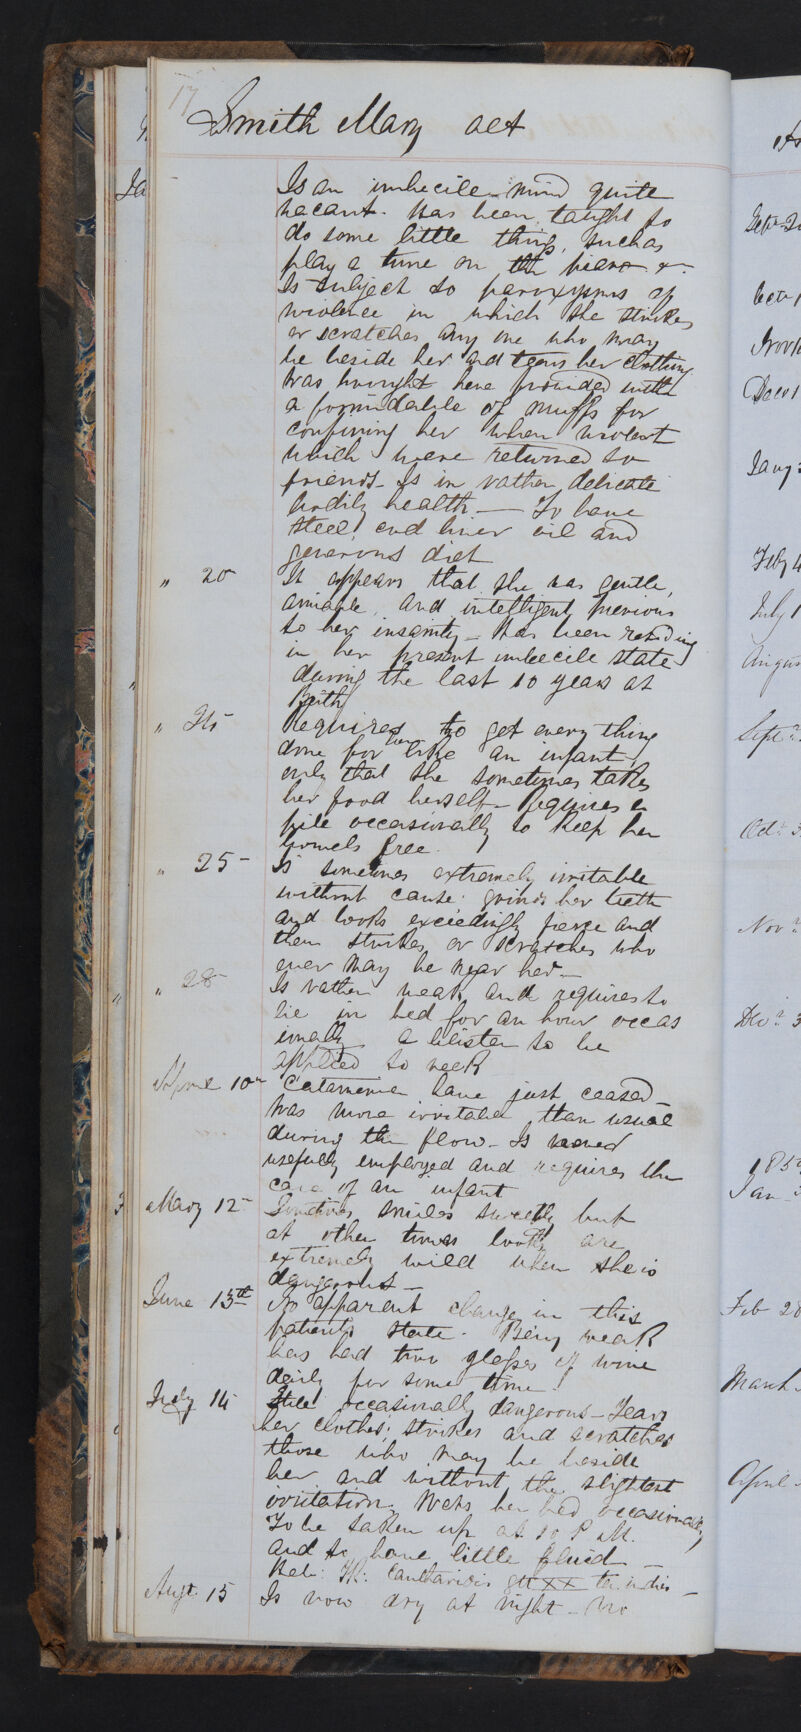 17
Smith Mary aet
Is an imbecile - mind quite
vacant. Has been taught to
do some little things, such as
play a tune on the piano &c.
Is subject to paroxysms of
violence in which she strikes
or scratches any one who may
be beside her and tears her clothing
Was brought here provided with
a formidable of muffs for
confining her when violent
which were returned to
friends - Is in rather delicate
bodily health — To have
steel, cod liver oil and
generous diet
" 20 It appears that she was gentle,
amiable, and intelligent previous
to her insanity - Has been residing
in her present imbecile state
during the last 10 years at
" Requires to get every thing
done for her like an infant,
only that she sometimes takes
her food herself - Requires a
pill occasionally to keep her
bowels free.
" 25 - Is sometimes extremely irritable
without cause: grinds her teeth
and looks exceedingly fierce and
then strikes or scratches who
ever may be near her -
" 28 Is rather weak and requires to
lie in bed for an hour occas
ionally. a blister to be
applied to neck
April 10 Catamenia have just ceased
was more irritable than usual
during the flow - Is never
usefully employed and requires the
care of an infant
May 12 Sometimes smiles sweetly but
at other times looks are
extremely wild when she is
dangerous -
June 13th No apparent change in this
patients state. Being weak
has had two glasses of wine
daily for some time.
July 14 Still occasionally dangerous - Tears
her clothes; strikes and scratches
those who may be beside
her and without the slightest
irritation. Wets her bed occasionally
To be taken up at 10 P.M.
and to have little fluid —
Hab: Tr: Cantharidis gtt XX ter in dies -
Augt. 15 Is now dry at night - No
Nov
Decr 1
Jany
Feby 4
July 1
Augus
Sept
Oct. 3
Nov.
Dec. 3
185
Jan
Feb 28
March
April